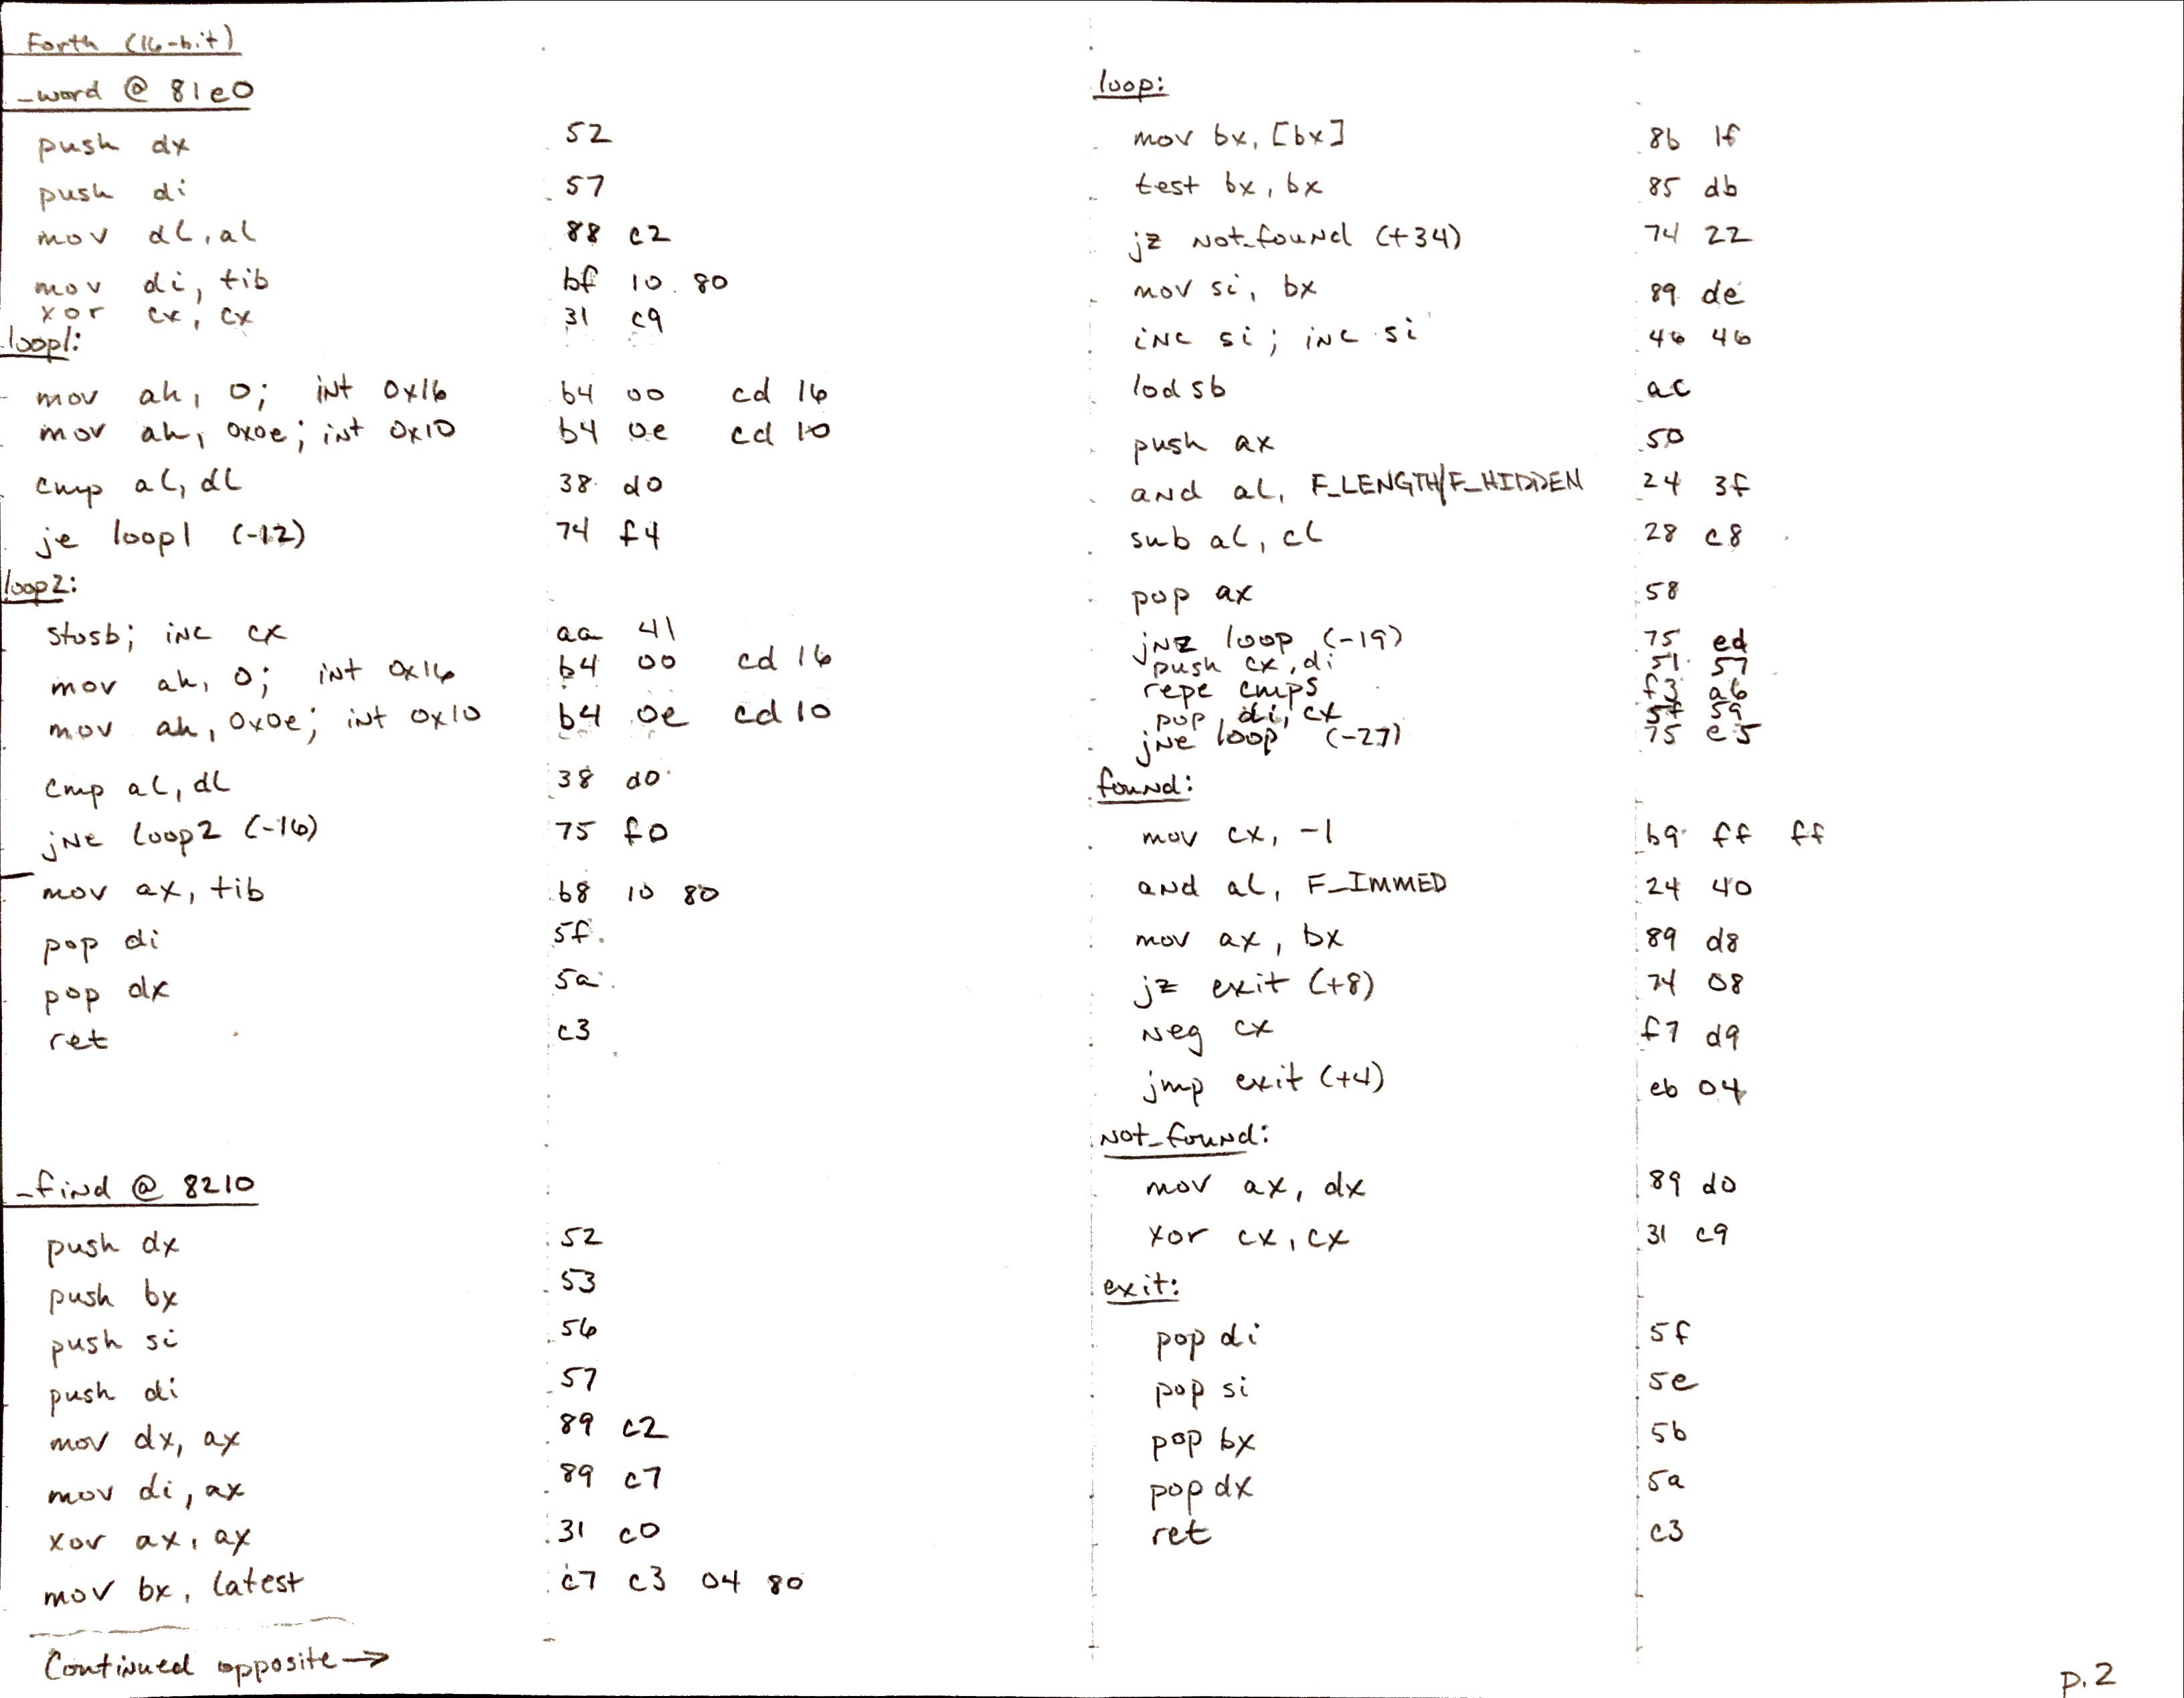 Forth (16-bit)
_word @ 81e0
push dx 52
push di 57
mov dl, al 88 c2
mov di, tib bf 10 80
xor cx, cx 31 c9
loop1:
mov ah, 0; int 0x16 b4 00 cd 16
mov ah, 0x0e; int 0x10 b4 0e cd 10
cmp al, dl 38 d0
je loop1 (-12) 74 f4
loop2:
stosb; inc cx aa 41
mov ah, 0; int 0x16 b4 00 cd 16
mov ah, 0x0e; int 0x10 b4 0e cd 10
cmp al, dl 38 d0
jne loop2 (-16) 75 f0
mov ax, tib b8 10 80
pop di 5f
pop dx 5a
ret c3
_find @ 8210
push dx 52
push bx 53
push si 56
push di 57
mov dx, ax 89 c2
mov di, ax 89 c7
xor ax, ax 31 c0
mov bx, latest c7 c3 04 80
Continued opposite →
loop:
mov bx, [bx] 8b 1f
test bx, bx 85 db
jz not_found (+34) 74 22
mov si, bx 89 de
inc si; inc si 46 46
lodsb ac
push ax 50
and al, F_LENGTH|F_HIDDEN 24 3f
sub al, cl 28 c8
pop ax 58
jnz loop (-19) 75 ed
push cx, di 51 57
repe cmps f3 a6
pop di, cx 5f 59
jne loop (-27) 75 e5
found:
mov cx, -1 b9 ff ff
and al, F_IMMED 24 40
mov ax, bx 89 d8
jz exit (+8) 74 08
neg cx f7 d9
jmp exit (+4) eb 04
not_found:
mov ax, dx 89 d0
xor cx, cx 31 c9
exit:
pop di 5f
pop si 5e
pop bx 5b
pop dx 5a
ret c3
p.2